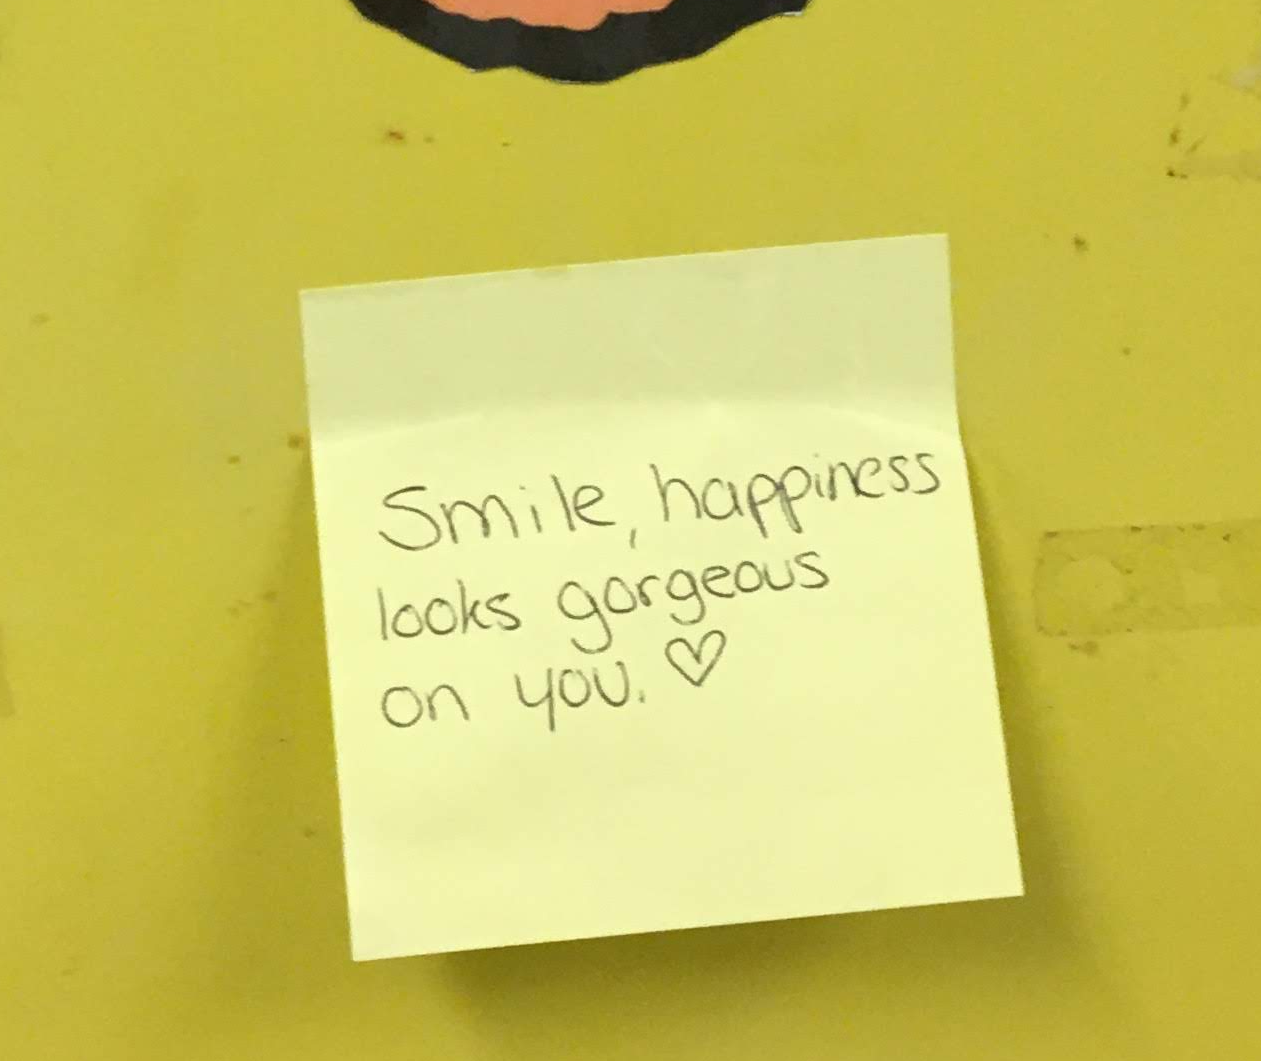 Smile, happiness
looks gorgeous
on you. ♡